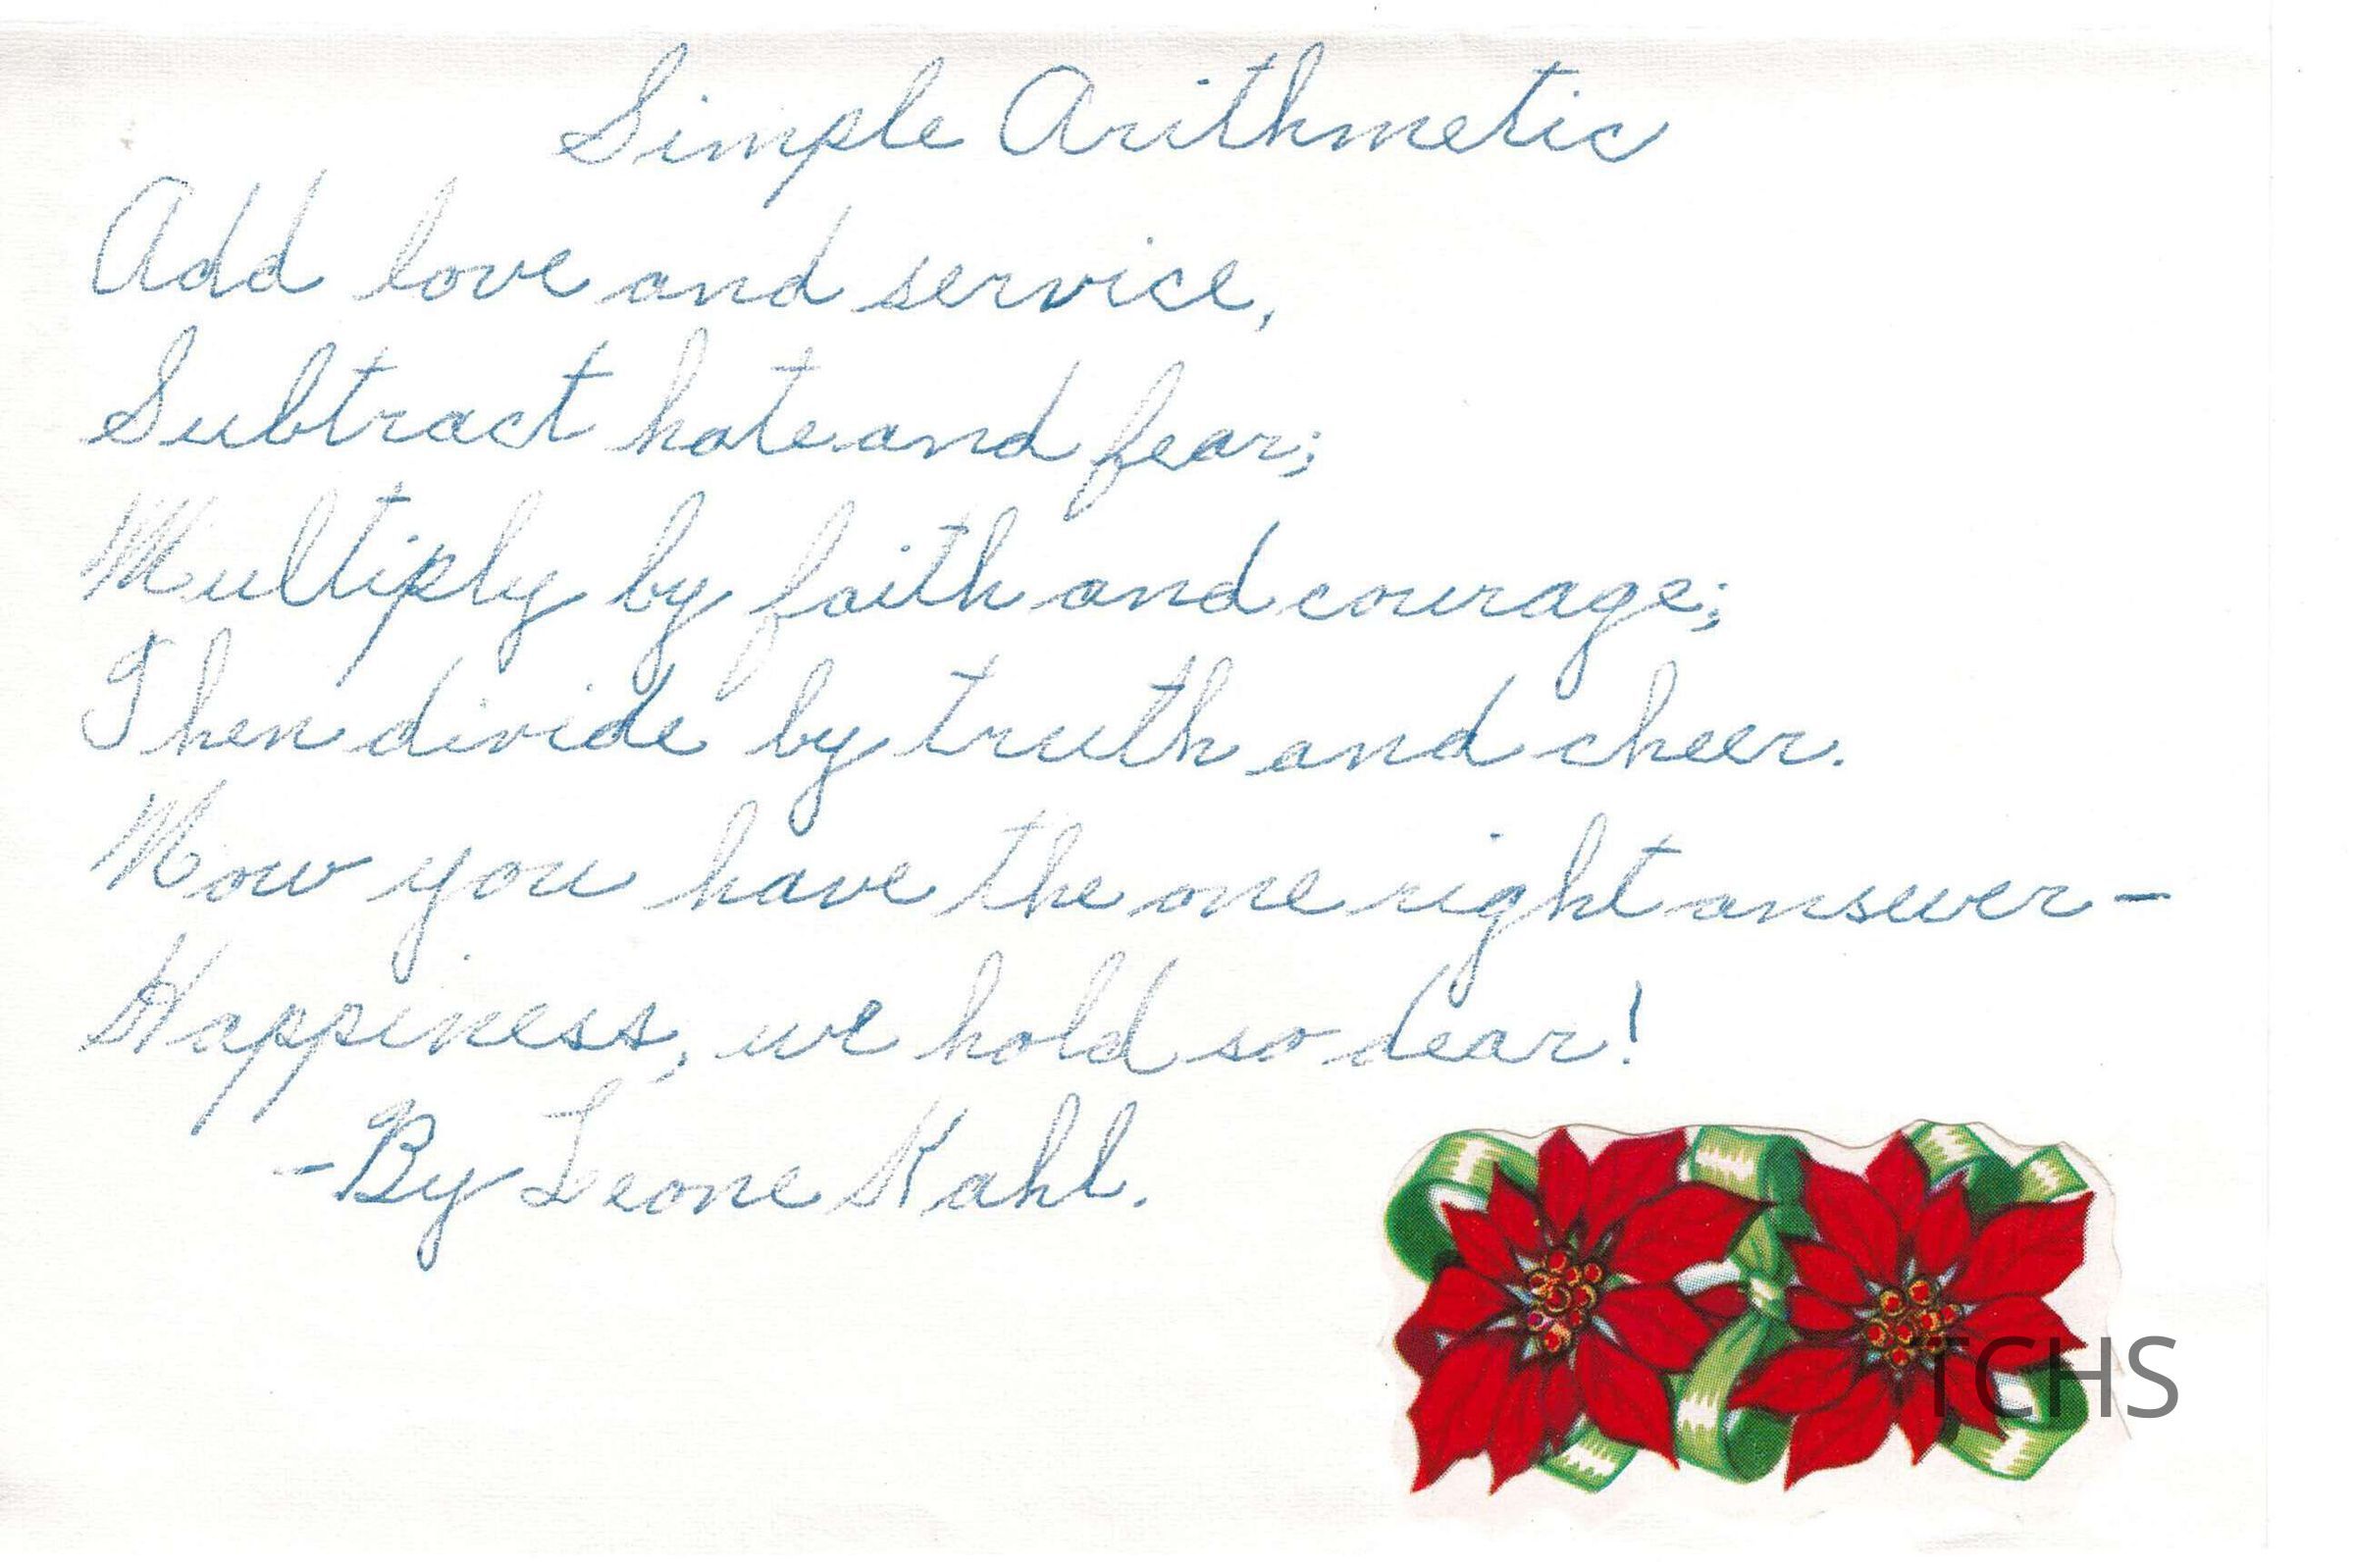 Simple Arithmetic
Add love and service,
Subtract hate and fear;
Multiply by faith and courage;
Then divide by truth and cheer.
Now you have the one right answer–
Happiness, we hold so dear!
–By Leone Kahl.
TCHS